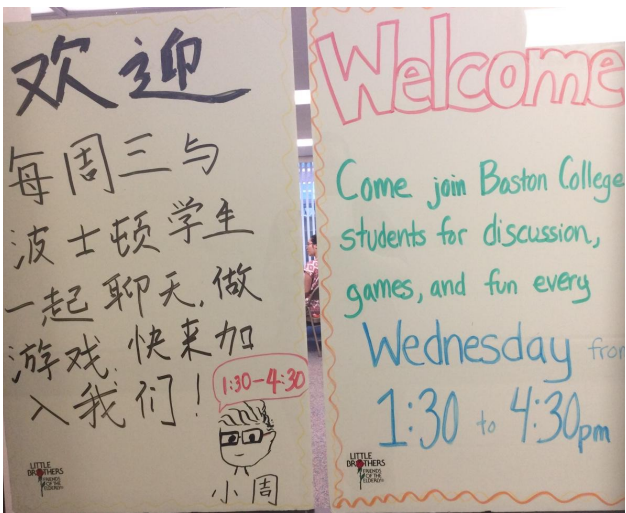 欢迎
每周三与
波士顿学生
一起聊天,做
游戏,快来加
入我们!
1:30-4:30
小周
LITTLE
BROTHERS
FRIENDS
OF THE
ELDERLY
Welcome
Come join Boston College
students for discussion,
games, and fun every
Wednesday from
1:30 to 4:30pm
LITTLE
BROTHERS
FRIENDS
OF THE
ELDERLY